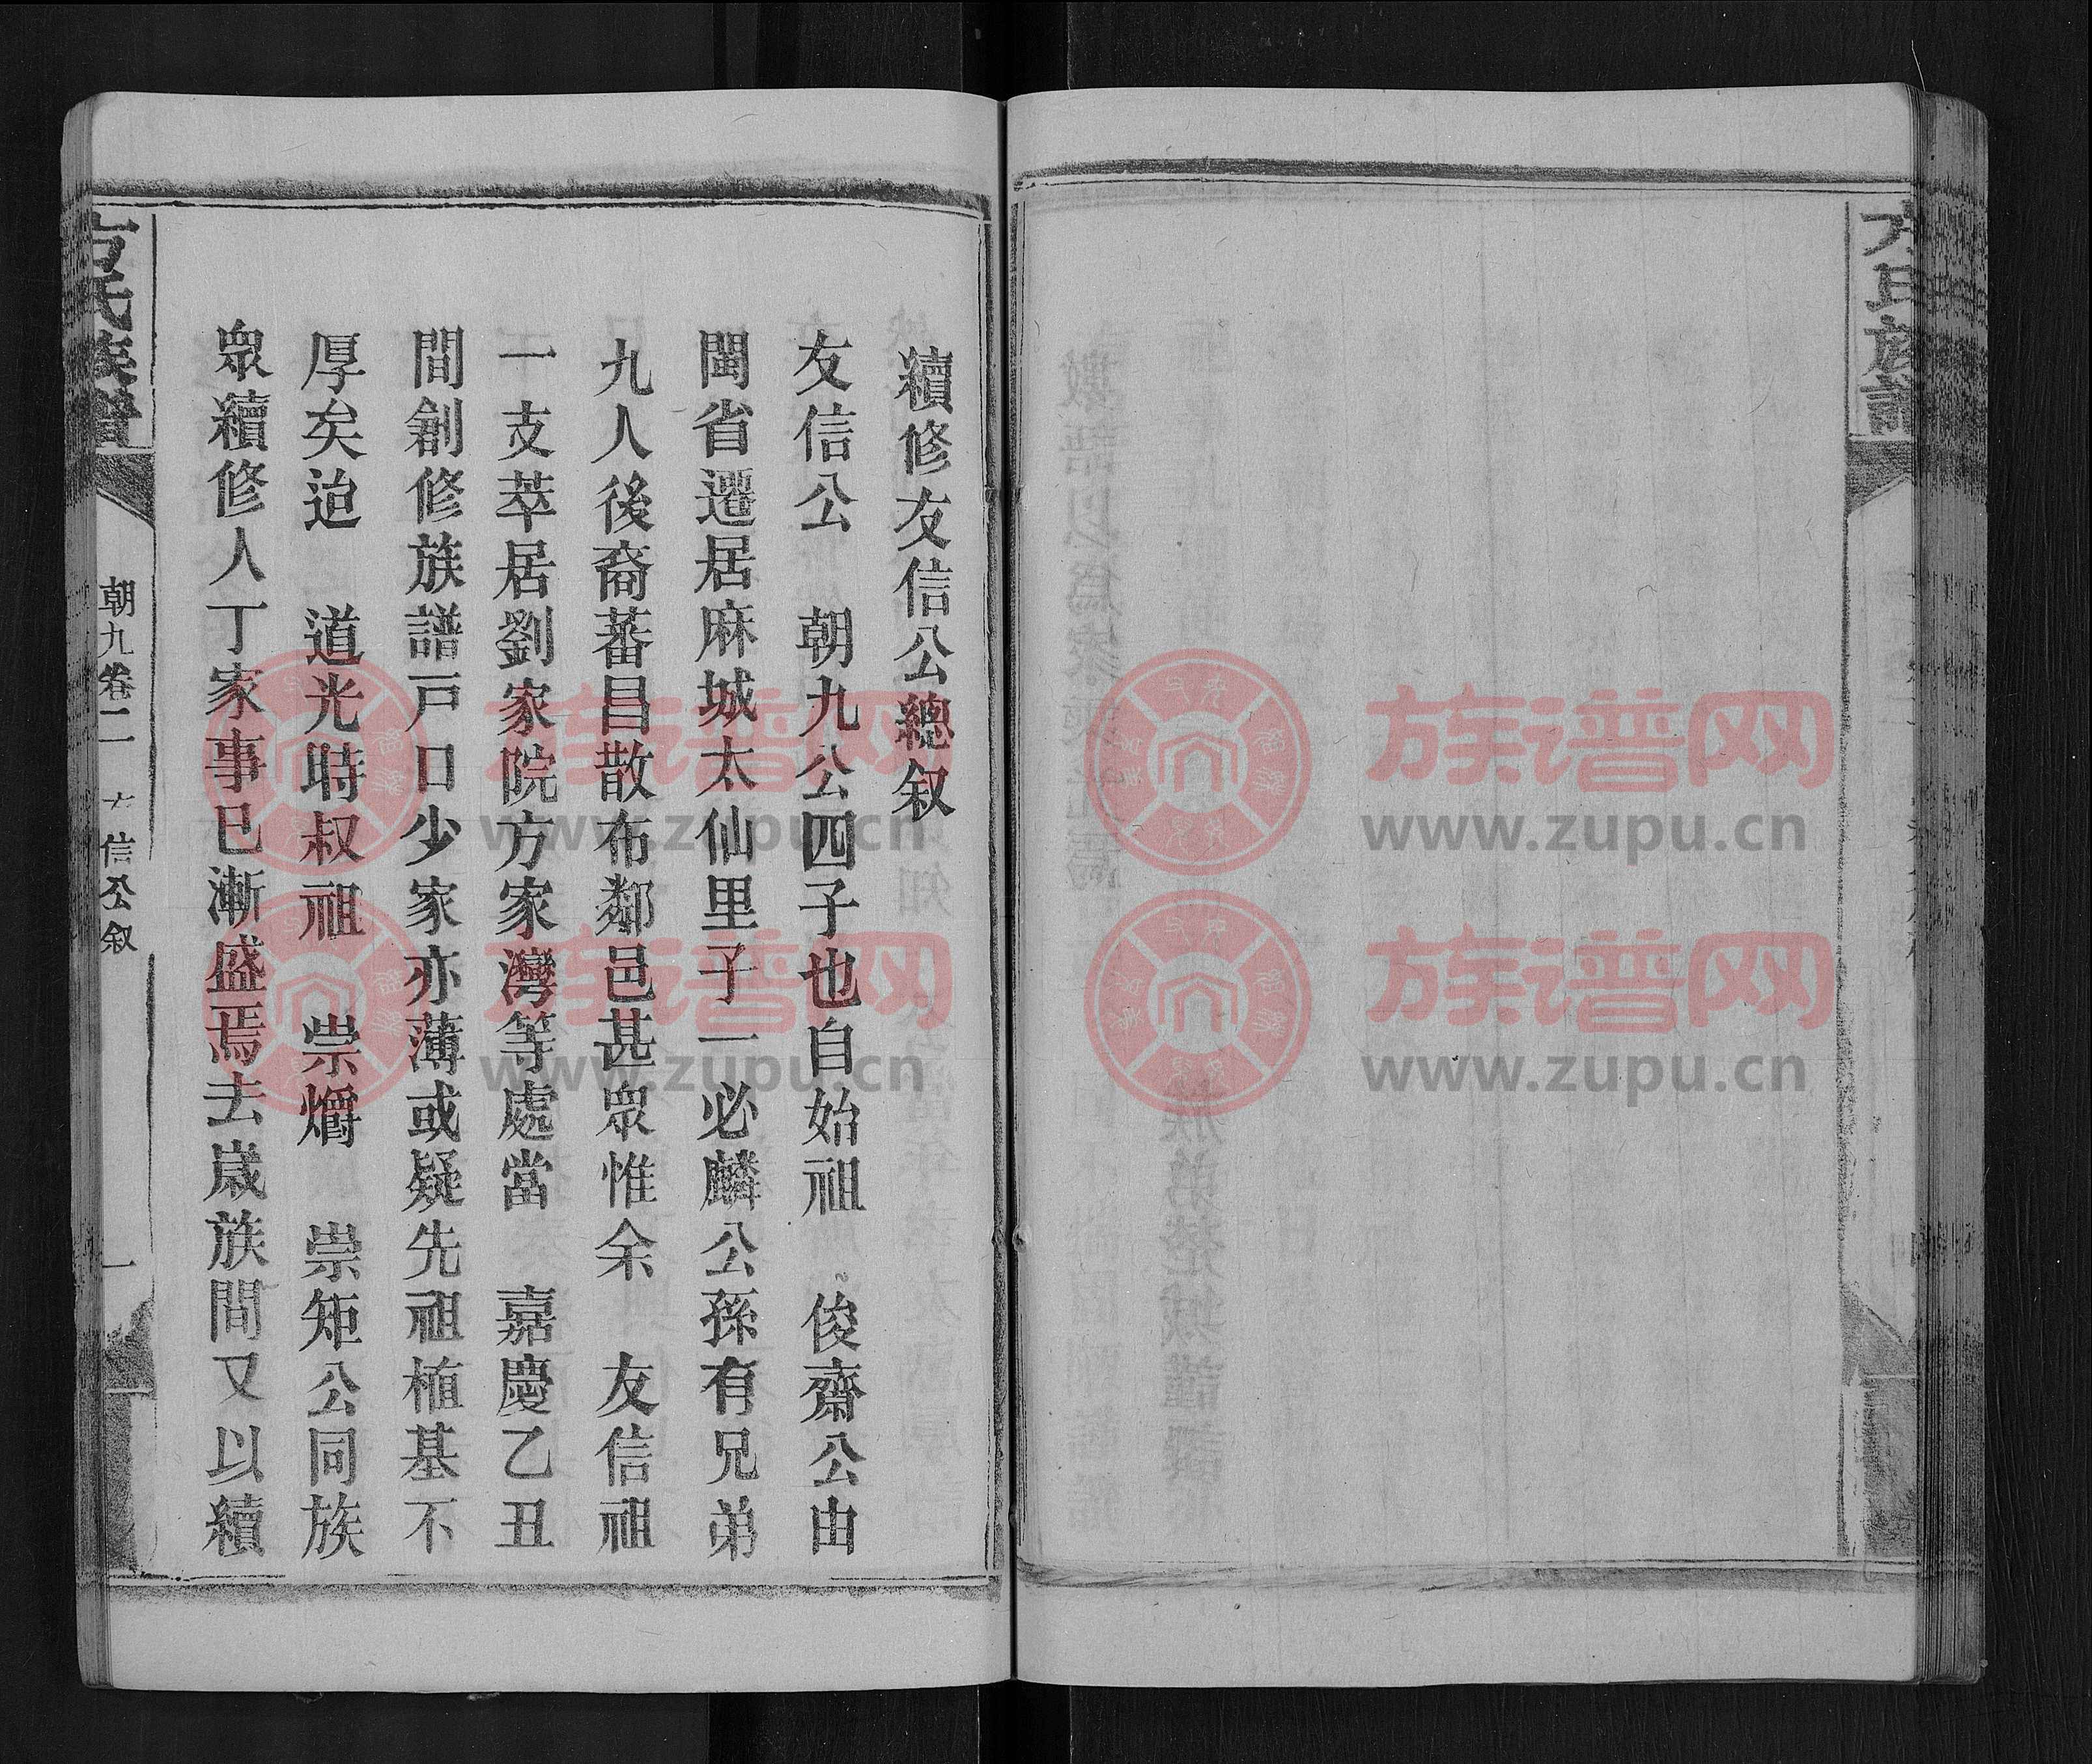 方氏族譜
續修友信公總叙
友信公 朝九公四子也自始祖 俊齋公由
閩省遷居麻城太仙里子一必麟公孫有兄弟
九人後裔蕃昌散布鄰邑甚眾惟余 友信祖
一支萃居劉家院方家灣等處當 嘉慶乙丑
間創修族譜戸口少家亦薄或疑先祖植基不
厚矣迨 道光時叔祖 崇爝 崇矩公同族
眾續修人丁家事已漸盛焉去歲族間又以續
方氏族譜
朝九卷二
友信公叙
一
族谱网
www.zupu.cn
族谱网
www.zupu.cn
族谱网
www.zupu.cn
族谱网
www.zupu.cn